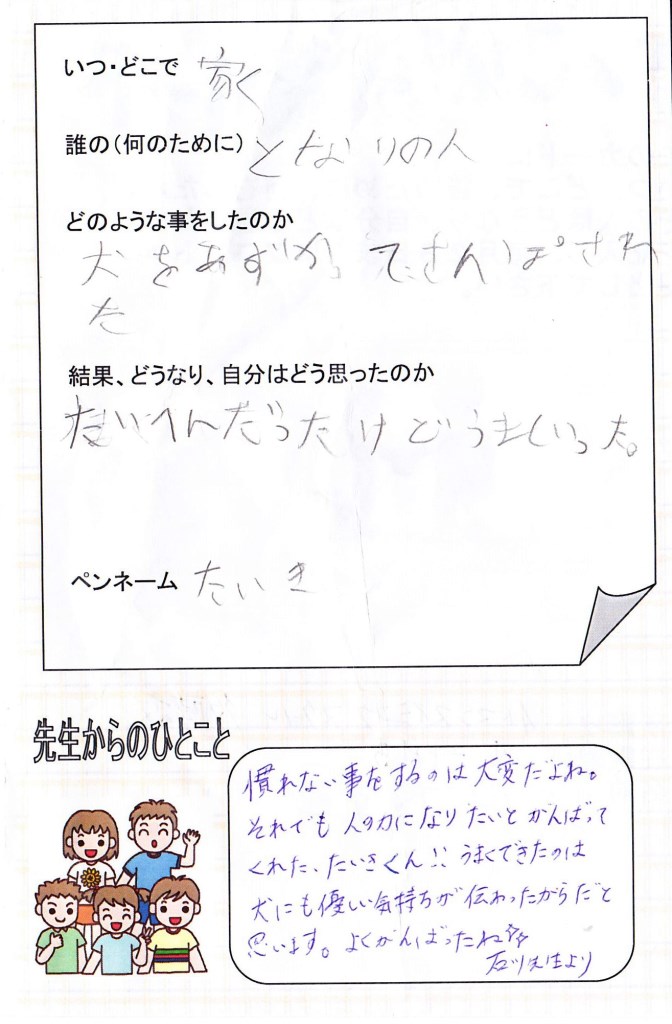 いつ・どこで 家
誰の(何のために) となりの人
どのような事をしたのか
犬をあずかってさんぽされ
た
結果、どうなり、自分はどう思ったのか
たいへんだったけどうまくいった。
ペンネーム たいき
先生からのひとこと
慣れない事をするのは大変だよね。
それでも人の力になりたいとがんばって
くれた、たいきくん!! うまくできたのは
犬にも優しい気持ちが伝わったからだと
思います。よくがんばったね☆☆
石川先生より